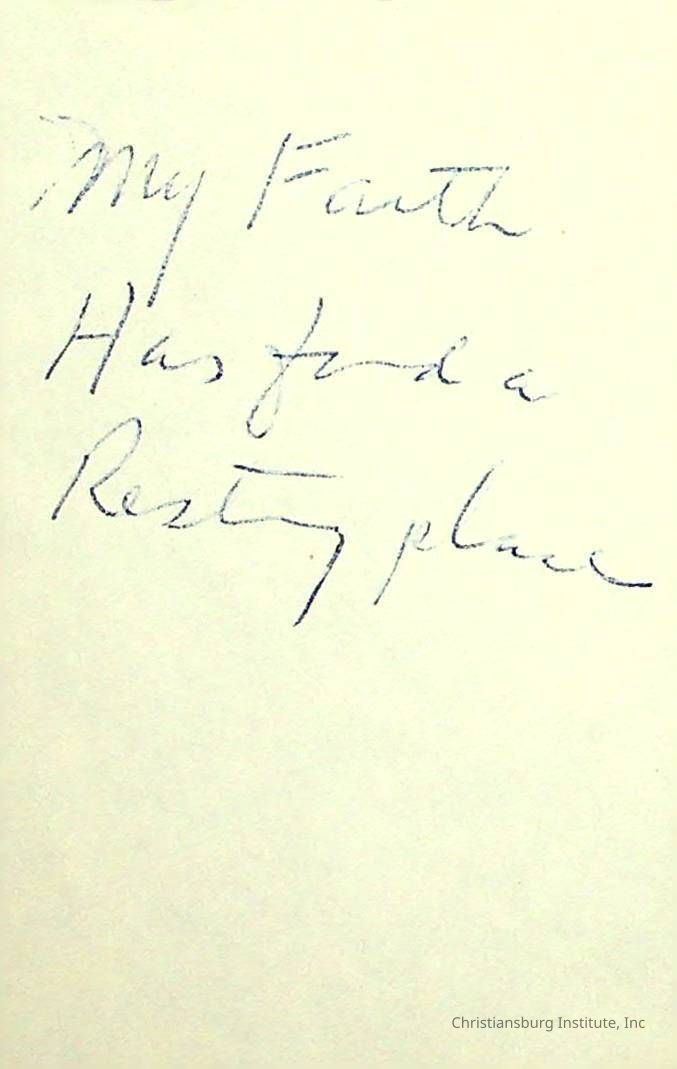 My Faith
Has found a
Resting place
Christiansburg Institute, Inc